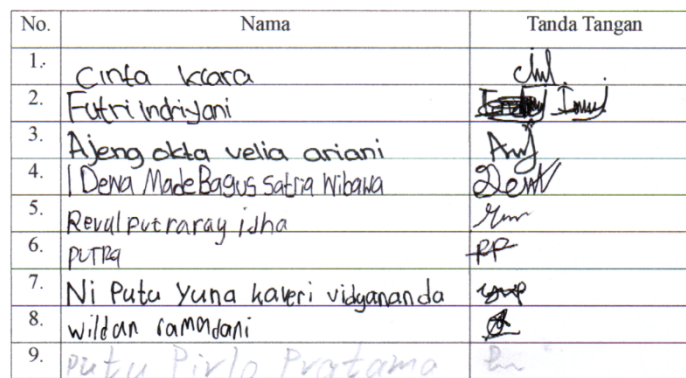 No. Nama Tanda Tangan
1. Cinta kiara
2. Futri Indriyani
3. Ajeng okta velia ariani
4. I Dewa Made Bagus Satria Wibawa
5. Reval putraray idha
6. PUTRA
7. Ni Putu Yuna kaveri vidyananda
8. wildan ramadani
9. Putu Pirlo Pratama